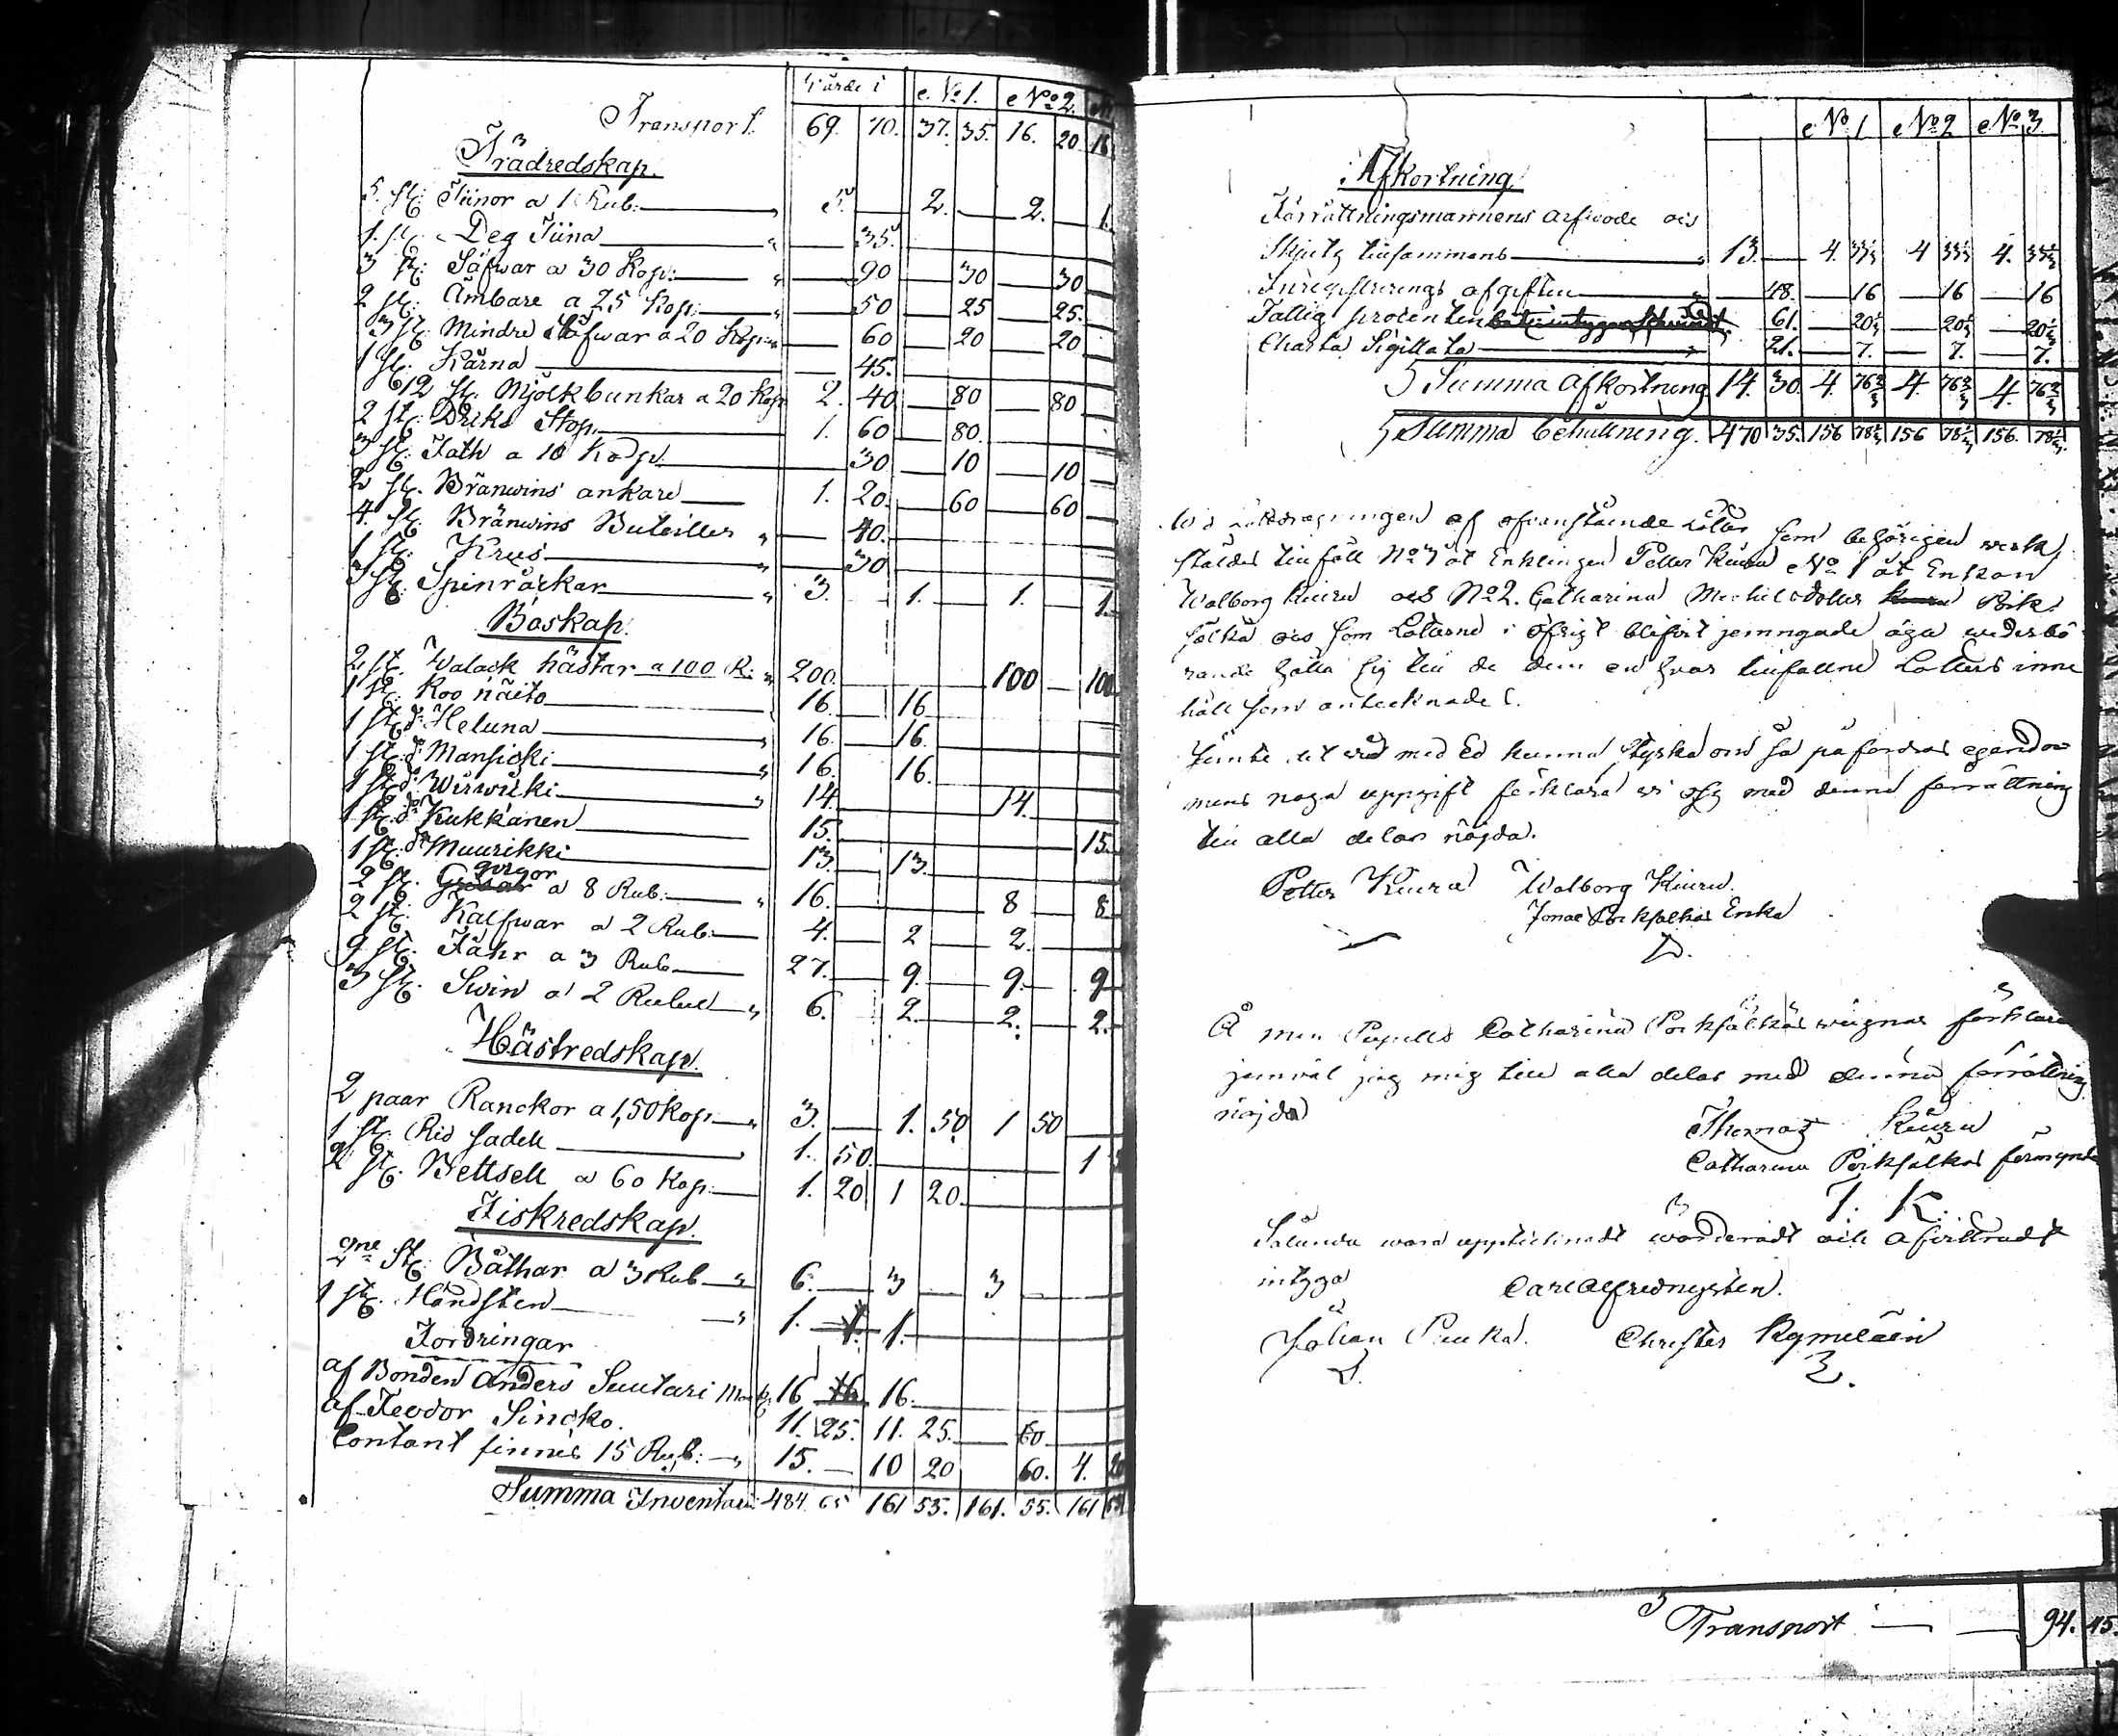 Wärde i | No 1. | No 2.
Transport. 69. 70. 37. 35. 16. 20. 16
Trädredskap.
5. st: Tiinor a 1 Rub: 5. 2. 2. 1.
1. st: Deg Tiina 35.
3 st: Säfwar a 30 Kop: 90 30 30
2 st: Ämbare a 25 Kop: 50 25 25.
3 st: Mindre Säfwar a 20 Kop: 60 20 20
1 st: Kärna 45.
12 st: Mjölkbunkar a 20 Kop 2. 40 80 80
2 st: Driks Stop 1. 60 80.
3 st: Fath a 10 Kop: 30 10 10
2 st. Bränwins ankare 1. 20. 60 60
4. st: Bränwins Buteiller 40.
1 st: Krus 30
3 st: Spinråckar 3. 1. 1. 1.
Boskap.
2 st. Walack hästar a 100 R: 200. 100 100
1 st: Koo näito 16. 16
1 st: do Heluna 16. 16.
1 st: do Mansicki 16. 16.
1 st: do Wirwicki 14. 14.
1 st: do Kukkanen 15. 15.
1 st: do Muurikki 13. 13.
2 st: qvigor a 8 Rub: 16. 8 8
2 st: Kalfwar a 2 Rub: 4. 2 2.
9 st. Fåhr a 3 Rub 27. 9. 9. 9
3 st. Swin a 2 Rubel 6. 2. 2. 2.
Hästredskap.
2 paar Ranckor a 1,50 Kop 3. 1. 50 1 50
1 st: Rid sadell 1. 50. 1
2 st: Bettsell a 60 Kop: 1. 20 1 20.
Fiskredskap.
2ne st: Båthar a 3 Rub 6. 3 3
1 st. Handsten 1. 1.
Fordringar
af Bonden Anders Suutari 16 16.
af Feodor Sincko. 11. 25. 11. 25. 60
Contant finnes 15 Rub: 15. 10 20 60. 4. 20
Summa Inventarii 484. 65 161 55. 161. 55. 161
No 1 | No 2 | No 3
Afkortning
Förrättningsmannens arfwode och
Skjuts tillsammans 13. 4. 33⅓ 4 33⅓ 4. 33⅓
Inregistrerings afgiften 48. 16 16 16
Fattig procenten 61. 20⅓ 20⅓ 20⅓
Charta Sigillata 21. 7. 7. 7.
Summa Afkortning 14. 30. 4. 76⅔ 4. 76⅔ 4. 76⅔
Summa behållning. 470 35. 156 78⅓ 156 78⅓ 156. 78⅓
Wid af ofvanstående Lotter som behörigen werk
stäldes tillföll No 3 åt Enklingen Petter Kiuru No 1 åt Enkan
Walborg Kiuru och No 2. Catharina Michelsdotter
och som Lotterne i öfrigt blifvit jemngade äga wederbö
rande hålla sig till de dem en hvar tillfallne Lotters inne
håll som antecknade.
med Ed kunna styrka om så påfordras egendo
mens noga uppgift förklara wi oss med denna förrättning
till alla delar nöjda.
Petter Kiuru Walborg Kiuru.
Enka
Å min Pupills Catharina wägnar förklarar
jemväl jag mig till alla delar med denna förrättning
nöjda
Thomas Kiuru
Catharina
T. K.
Sålunda wara upptecknadt wärderadt och
intyga Carl Alfred Nysten.
Johan Christer Kymeläin
Transport 94. 15.